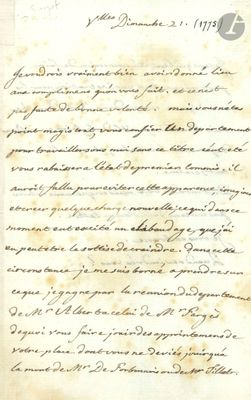 Vlles Dimanche 21. (1775)
Je voudrois vraiment bien avoir donné lieu
aux complimens qu'on vous fait, et ce n'est
pas faute de bonne volonté: mais vous n'etes
point magis tout vous confier un departement
pour travailler sous moi sans ce titre c'eut eté
vous rabaisser a l'etat de premier Commis, il
auroit fallu pour eviter cette apparence imaginer
et creer quelque charge nouvelle; ce qui dans ce
moment eut excité un clabaudage, que j'ai
eu peut etre la sottise de craindre. Dans cette
circonstance je me suis borné a prendre sur
ce que je gagne par la reunion du departement
de Mr Albert a celui de Mr Fargès
de quoi vous faire jouir des appointemens de
votre place dont vous ne deviés jouir qu'a
la mort de Mr De Forbonnais ou de Mr Tillet.